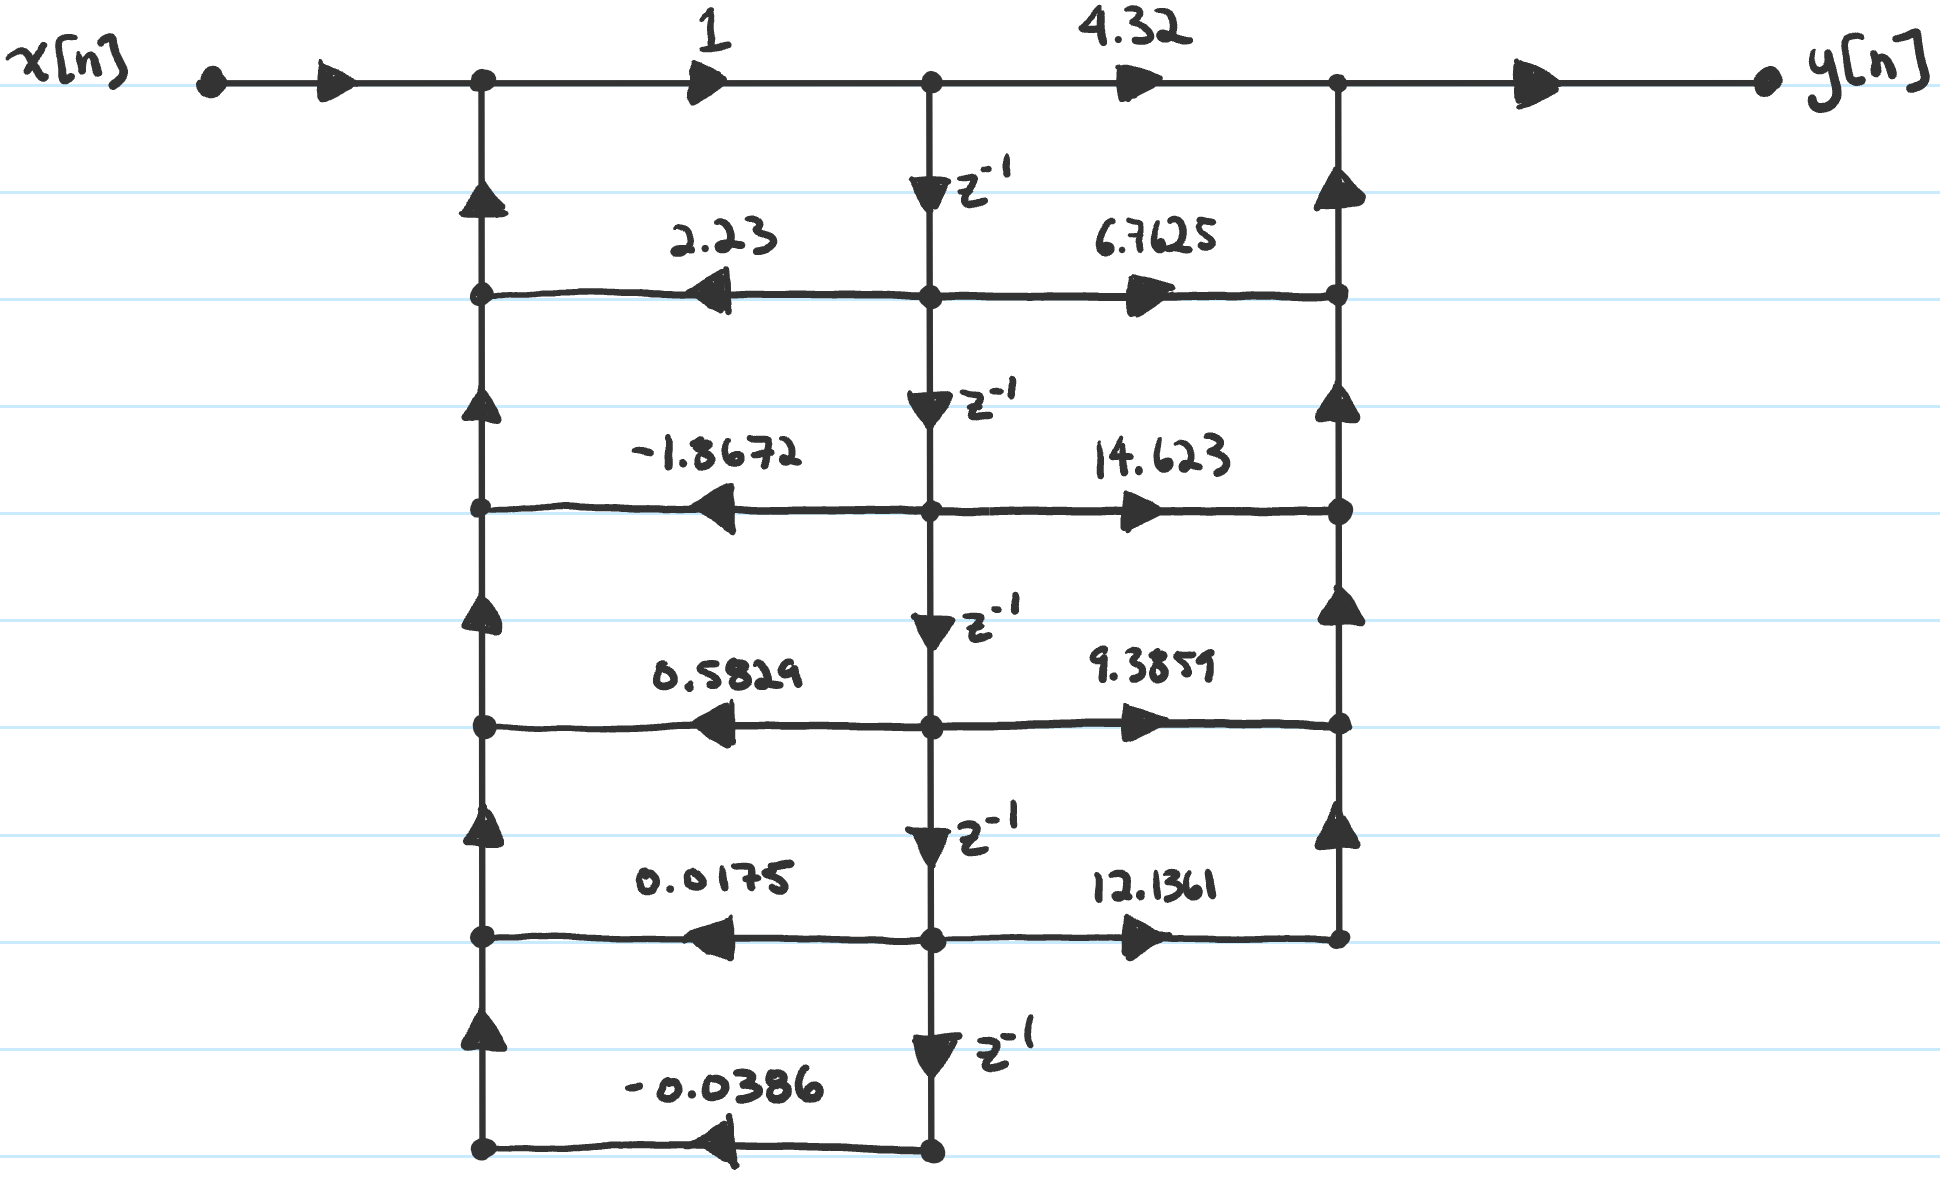 x[n] 1 4.32 y[n]
z⁻¹
2.23 6.7625
z⁻¹
-1.8672 14.623
z⁻¹
0.5829 9.3859
z⁻¹
0.0175 12.1361
z⁻¹
-0.0386